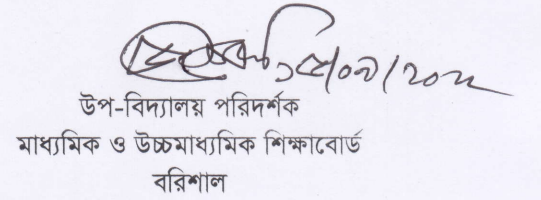 উপ-বিদ্যালয় পরিদর্শক
মাধ্যমিক ও উচ্চমাধ্যমিক শিক্ষাবোর্ড
বরিশাল